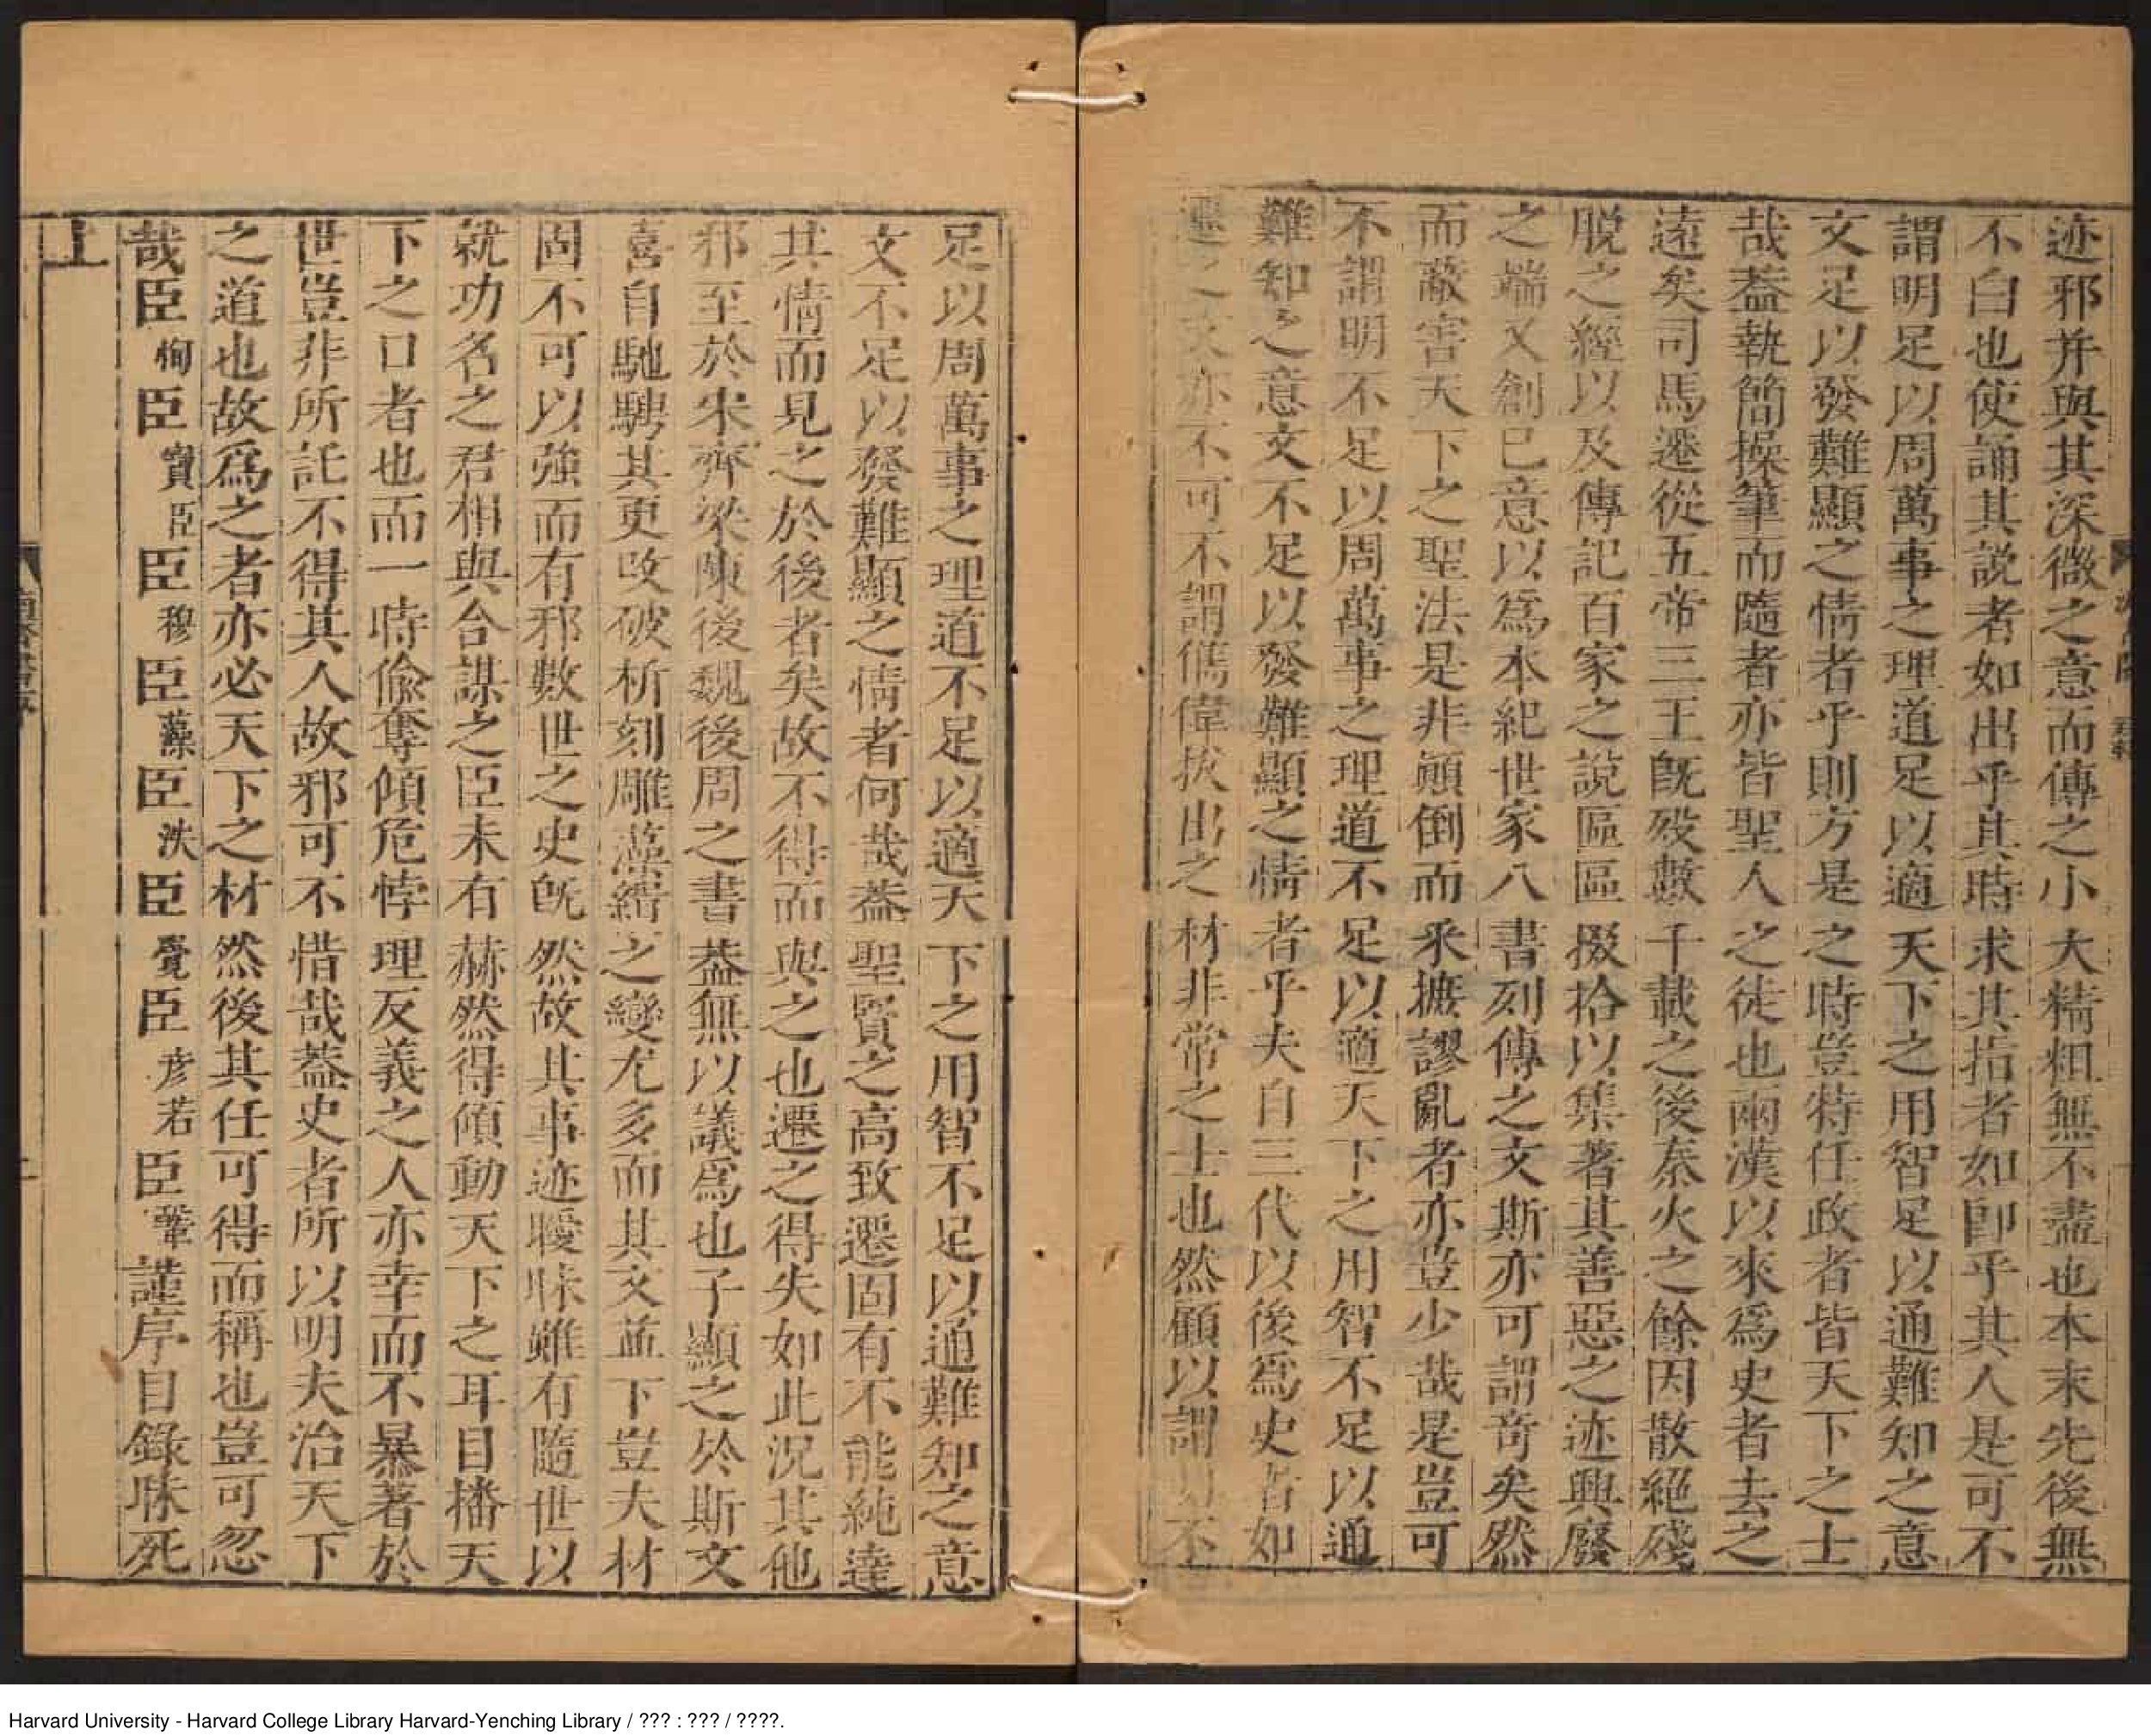 迹邪并與其深微之意而傳之小大精粗無不盡也本末先後無
不白也使誦其説者如出乎其時求其指者如卽乎其人是可不
謂明足以周萬事之理道足以適天下之用智足以通難知之意
文足以發難顯之情者乎則方是之時豈特任政者皆天下之士
哉葢執簡操筆而隨者亦皆聖人之徒也兩漢以來爲史者去之
遠矣司馬遷從五帝三王旣歿數千載之後秦火之餘因散絕殘
脫之經以及傳記百家之説區區掇拾以集著其善惡之迹興廢
之端又創巳意以爲本紀世家八書列傳之文斯亦可謂奇矣然
而蔽害天下之聖法是非顛倒而采摭謬亂者亦豈少哉是豈可
不謂明不足以周萬事之理道不足以適天下之用智不足以通
難知之意文不足以發難顯之情者乎夫自三代以後爲史者如
遷之文亦不可不謂儁偉拔出之材非常之士也然顧以謂明不
足以周萬事之理道不足以適天下之用智不足以通難知之意
文不足以發難顯之情者何哉葢聖賢之高致遷固有不能純達
其情而見之於後者矣故不得而與之也遷之得失如此況其他
邪至於宋齊梁陳後魏後周之書葢無以議爲也子顯之於斯文
喜自馳騁其更改破析刻雕藻繢之變尤多而其文益下豈夫材
固不可以強而有邪數世之史旣然故其事迹曖昧雖有隨世以
就功名之君相與合謀之臣未有赫然得傾動天下之耳目播天
下之口者也而一時偸奪傾危悖理反義之人亦幸而不暴著於
世豈非所託不得其人故邪可不惜哉葢史者所以明夫治天下
之道也故爲之者亦必天下之材然後其任可得而稱也豈可忽
哉臣恂臣寶臣臣穆臣藻臣洙臣覺臣彥若臣鞏謹序目錄昧死
上